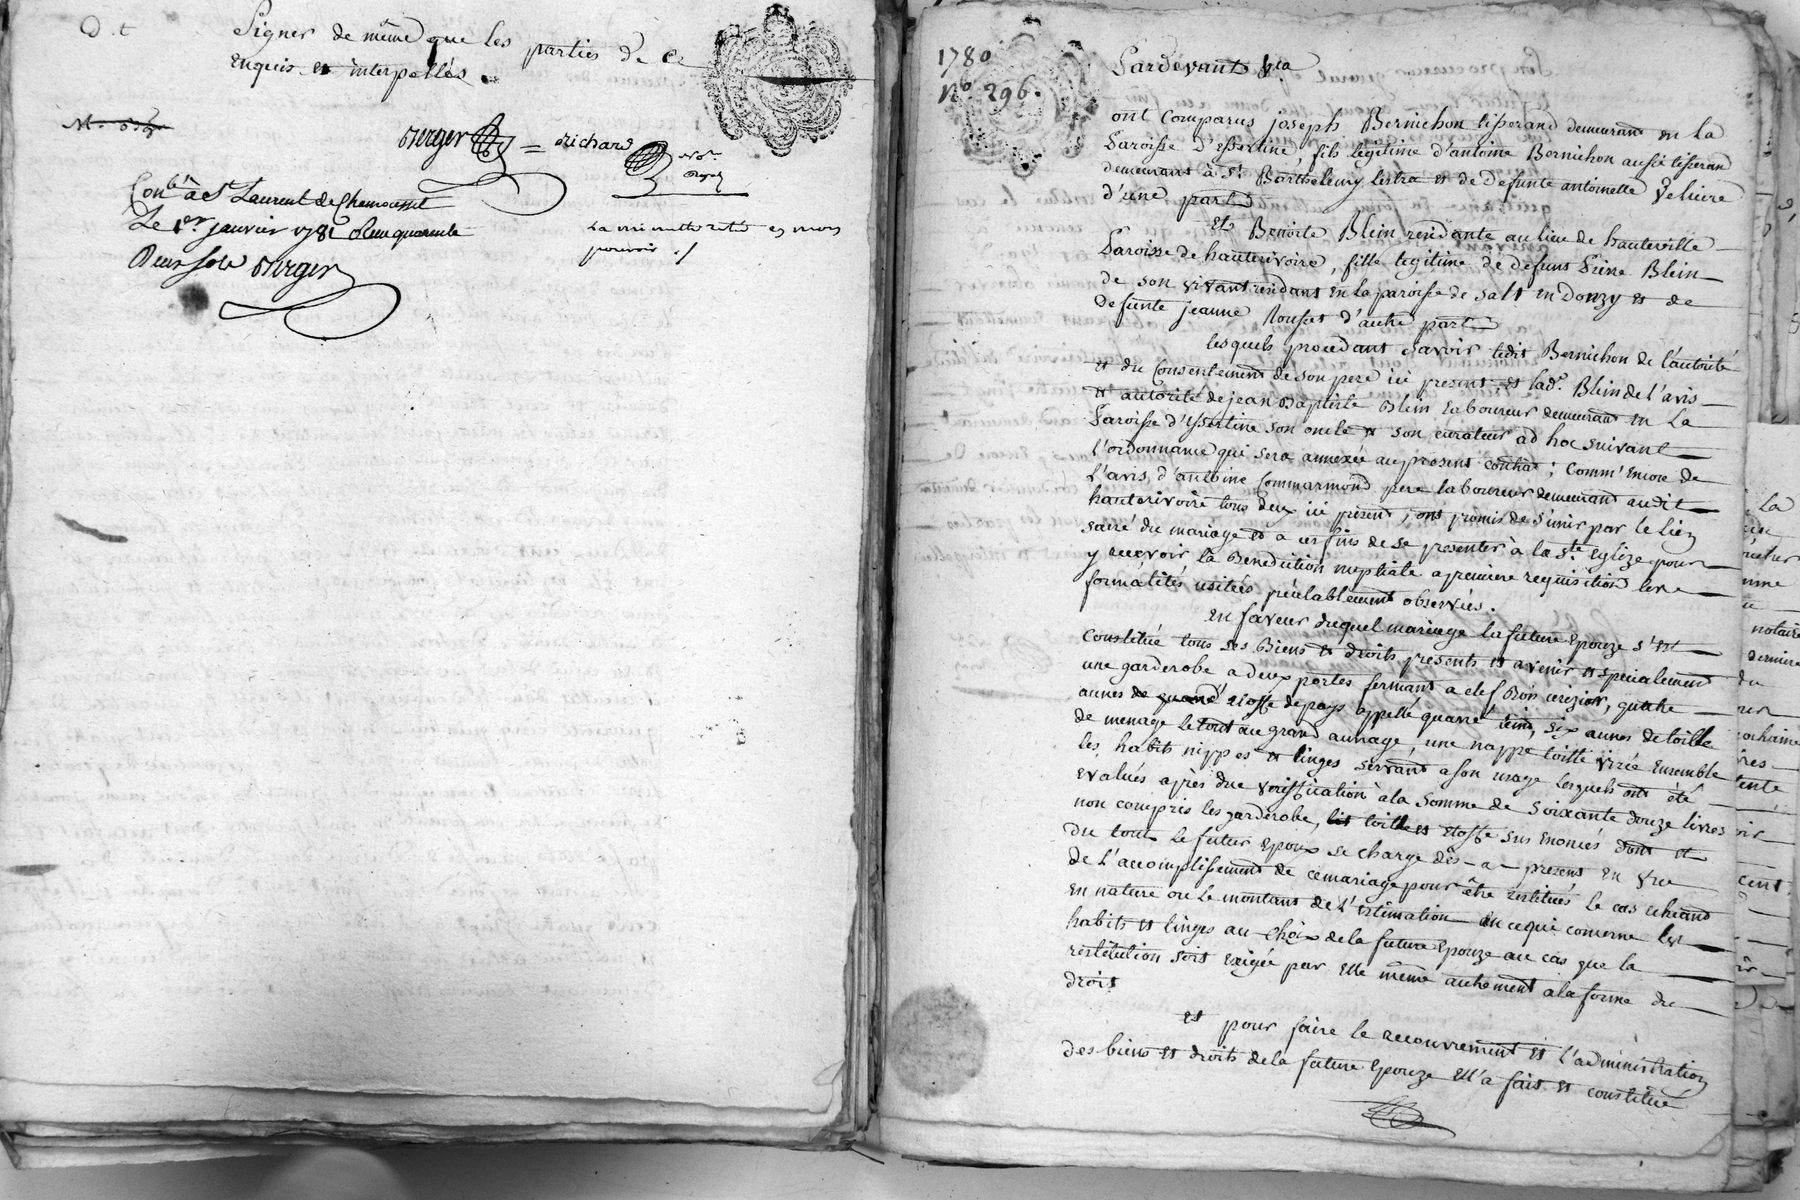 d. t
Signer de même que les parties de ce
enquis et interpellés .
M. 659
Berger = Richard
nore
royal
Conlé à St Laurent de Chamousset
Le 1er janvier 1781 Reçu quarante
Deux sols Berger
La minute restée en mon
pouvoir ./
1780
No. 296.
Pardevant &ca
ont comparus joseph Bernichon tisserand demeurant en la
Paroisse d'Essertine, fils légitime d'antoine Bernichon aussi tisserand
demeurant à St. Barthelemy lestra et de defunte antoinette Veluire
d'une part
Et Benoite Blein residante au lieu de hauteville
Paroisse de hauterivoire, fille legitime de defunt Pierre Blein
de son vivant residant en la paroisse de salt en Donzy et de
defunte jeanne Rousset d'autre part
lesquels procedant savoir ledit Bernichon de l'autorité
et du Consentement de son pere ici present, et lade. Blein de l'avis
et autorité de jean Baptiste Blein laboureur demeurant en La
Paroisse d'Essertine son oncle et son curateur ad hoc suivant
l'ordonnance qui sera annexée au present contrat ; comm' encore de
l'avis d'antoine Commarmond pere laboureur demeurant audit
hauterivoire tous deux ici present, ont promis de s'unir par le lien
sacré du mariage et a ces fins de se presenter à la ste Eglize pour
y recevoir la Benediction nuptiale a premiere requisition les
formalités usitées préalablement observées.
En faveur duquel mariage la future Epouze s'est
constitué tous ses Biens et droits presents et avenir et specialement
une garderobe a deux portes fermant a clef Bois cerizier, quatre
aunes de quarré etoffe de pays appellé quarré teint, six aunes de toille
de menage le tout au grand aunage, une nappe toille virée Ensemble
les habits nippes et linges servant a son usage lesquels ont été
evalués après due veriffication à la somme de soixante douze livres
non compris les garderobe, lit toille et etoffe sus enoncés dont et
du tout le futur Epoux se charge dès-a-present en vue
de l'accomplissement de ce mariage pour être restitués le cas echeant
en nature ou le montant de l'estimation en ce qui concerne les
habits et linges au choix de la future Epouze au cas que la
restitution soit exigée par elle même autrement a la forme du
droit
et pour faire le recouvrement et l'administration
des biens et droits de la future Epouze Ell'a fait et constitué